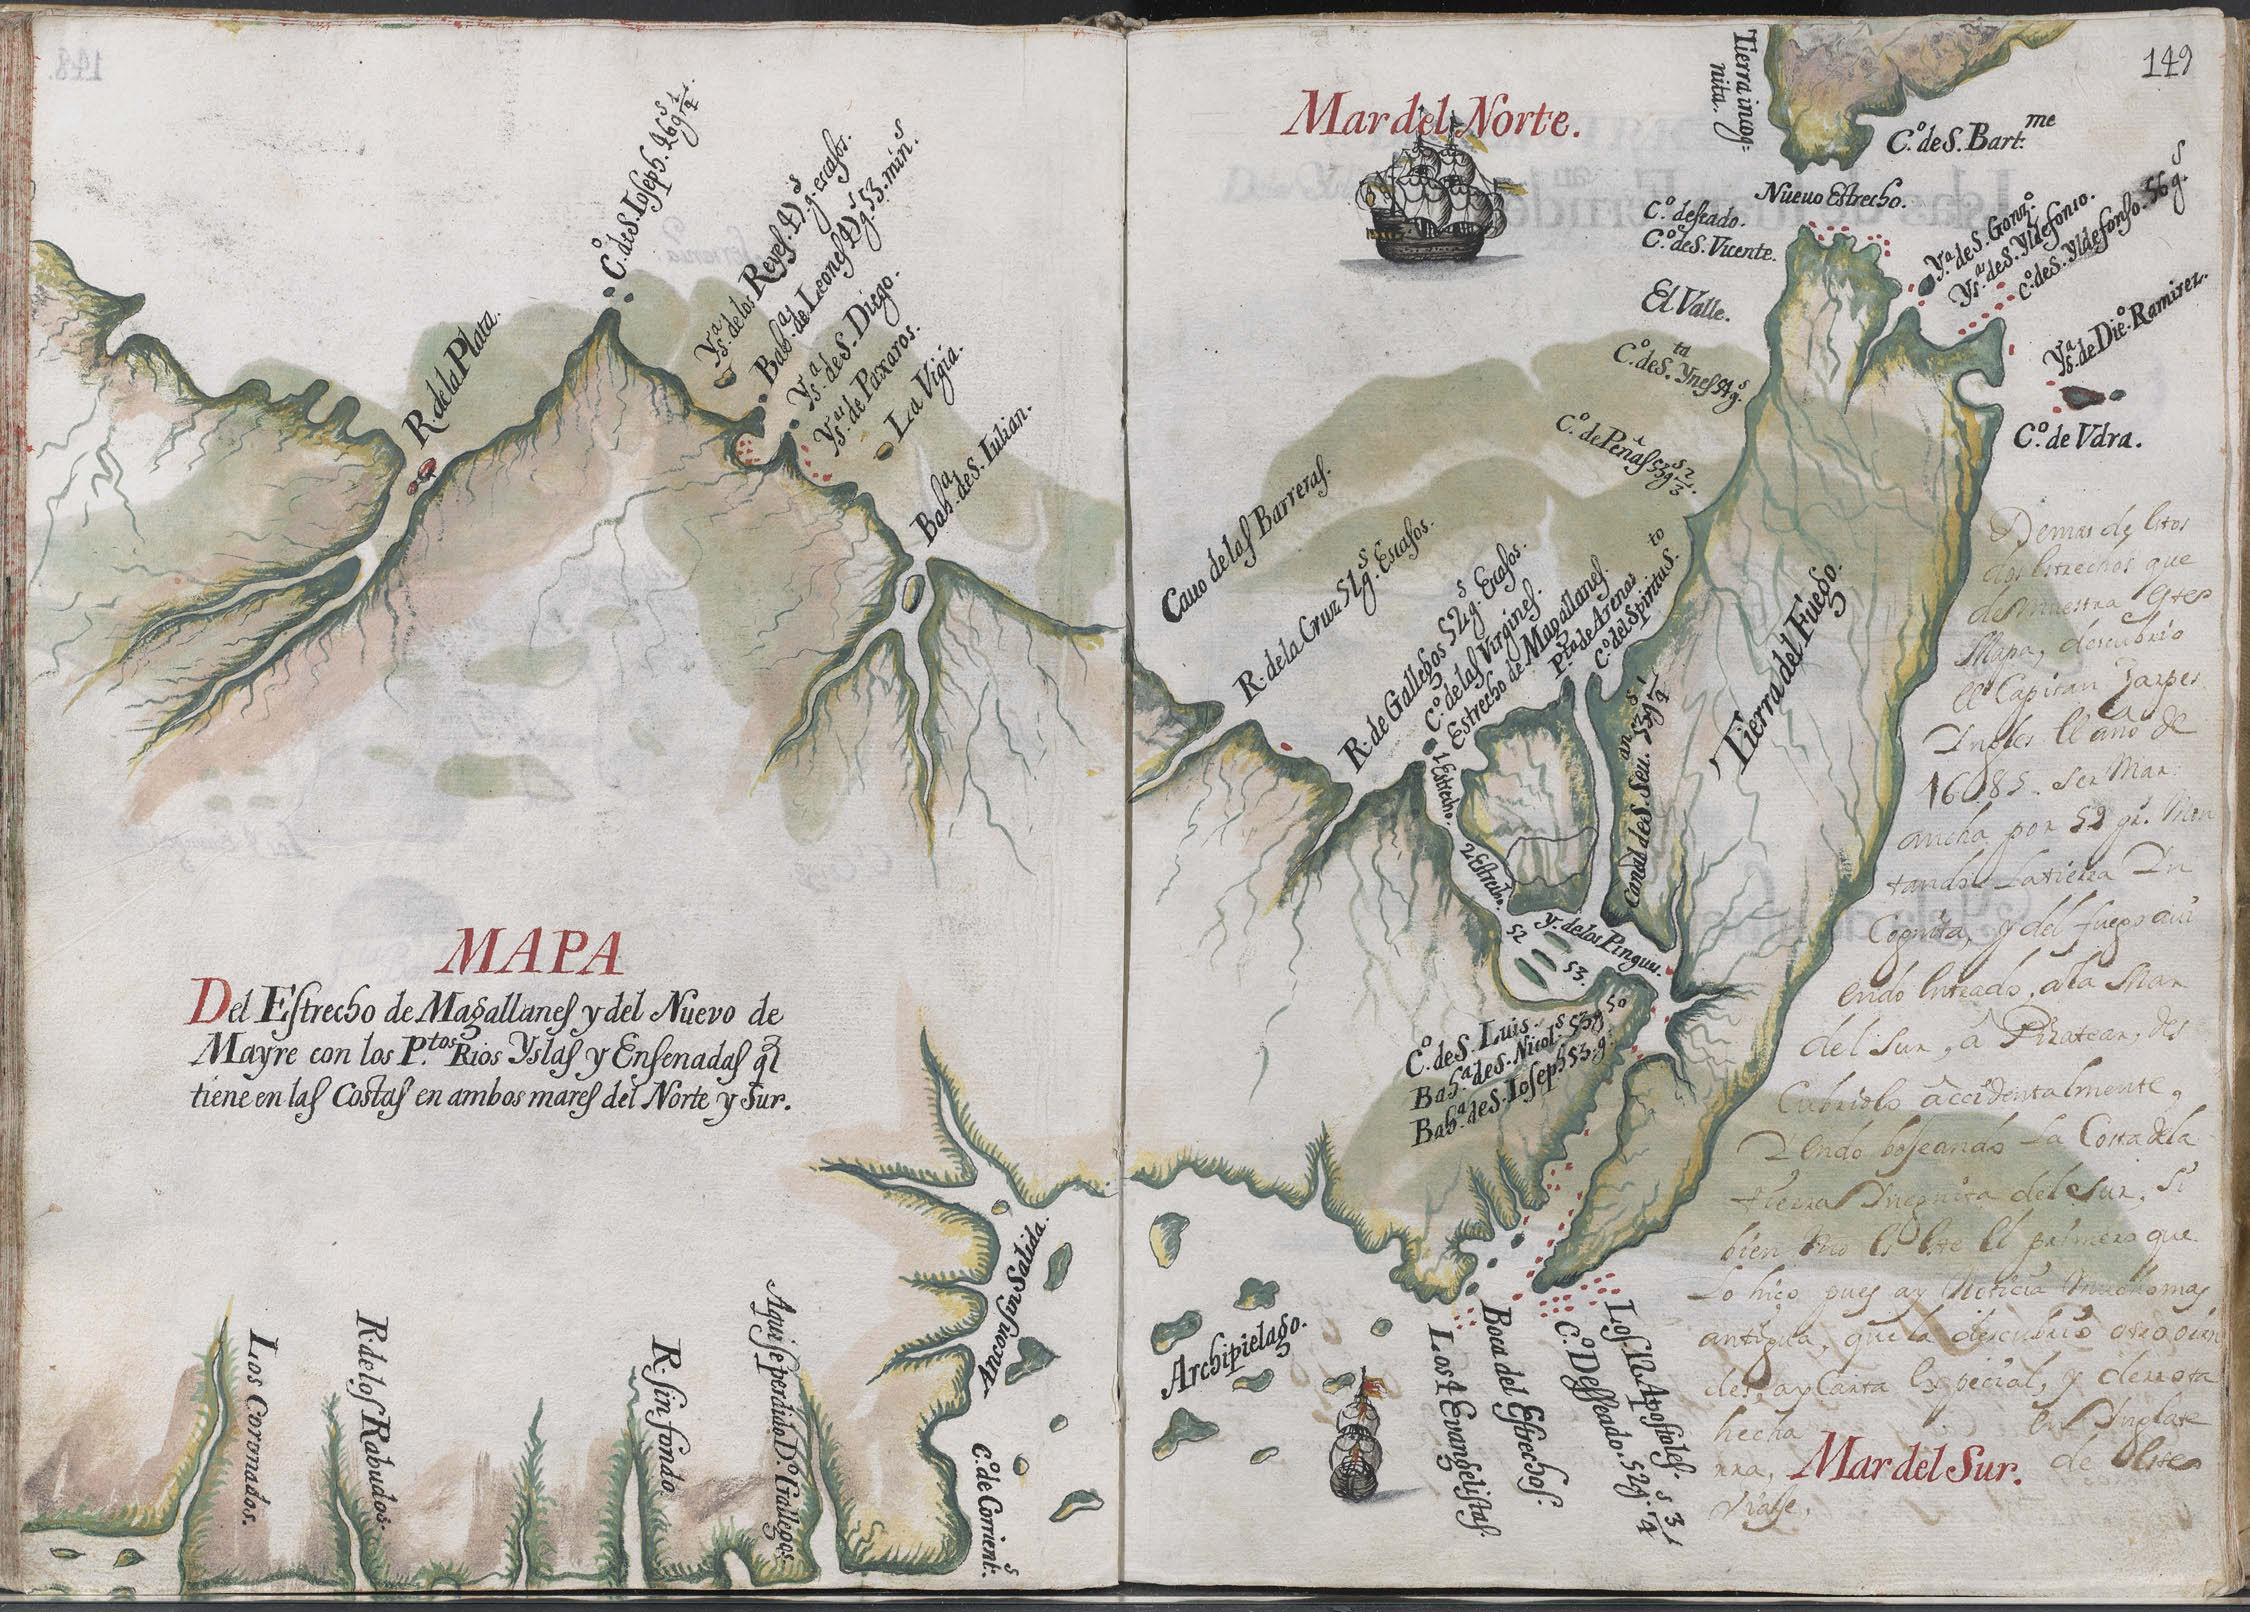 148.
C.º de S. Ioseph. 46 g.s 1/4.
R. de la Plata.
Ys.as de los Reyes. 47 g.s escasos.
Bah.a de Leones 47 g.s 53. min.s
Ys.as de S. Diego.
Ys.as de Paxaros.
La Vigia.
Bah.a de S. Iulian.
MAPA
Del Estrecho de Magallanes y del Nuevo de
Mayre con los P.tos Rios Yslas y Ensenadas q̃
tiene en las Costas en ambos mares del Norte y Sur.
Los Coronados.
R. de los Rabudos.
R. sin fondo.
Aqui se perdido D.º Gallegos.
Ancon sin Salida.
C.º de Corrient.s
149
Mar del Norte.
Tierra incog-
nita.
C.º de S. Bart.me
Nueuo Estrecho.
C.º deseado.
C.º de S. Vicente.
Y.a de S. Gonz.º
Ys.as de S. Yldefonso.
C.º de S. Yldefonso. 56 g.s
El Valle.
Ys.as de Die.º Ramirez.
C.º de S.ta Ynes 54 g.s
C.º de Peñas 53 g.s 2/3.
C.º de Udra.
Cauo de las Barreras.
R. de la Cruz 51 g.s Escasos.
R. de Gallegos 52 g.s Ecasos.
C.º de las Virgines.
Estrecho de Magallanes.
P.ta de Arenas
C.º del Spiritu S.to
1 Estrecho.
2 Estrecho.
Canal de S. Seu.an 53 g.s 1/4
Tierra del Fuego.
Y. de los Pingui.
52
53.
C.º de S. Luis.
Bah.a de S. Nicol.s 53 g. 50
Bah.a de S. Ioseph 53. g.
Demas de estos
dos estrechos que
demuestra este
Mapa, descubrio
el Capitan
Ingles el año de
1685. ser Mar
ancha por 59 gr. Mon
tando la tierra In
Cognita, y del fuego avi
endo entrado, a la Mar
del Sur, a Piratear, des
Cubriolo accidentalmente,
Yendo boseando la Costa de la
tierra Incognita del Sur, Si
bien no es este el primero que
lo hiço pues ay Noticia mucho mas
antigua, que la descubrio otro
des, ay Carta especial, y derrota
hecha en Inglate
rra, de este
Viage.
Archipielago.
Los 4 Euangelistas.
Boca del Estrecho.
C.º Desseado. 52 g.s 3/4
Los 12 Apostoles.
Mar del Sur.